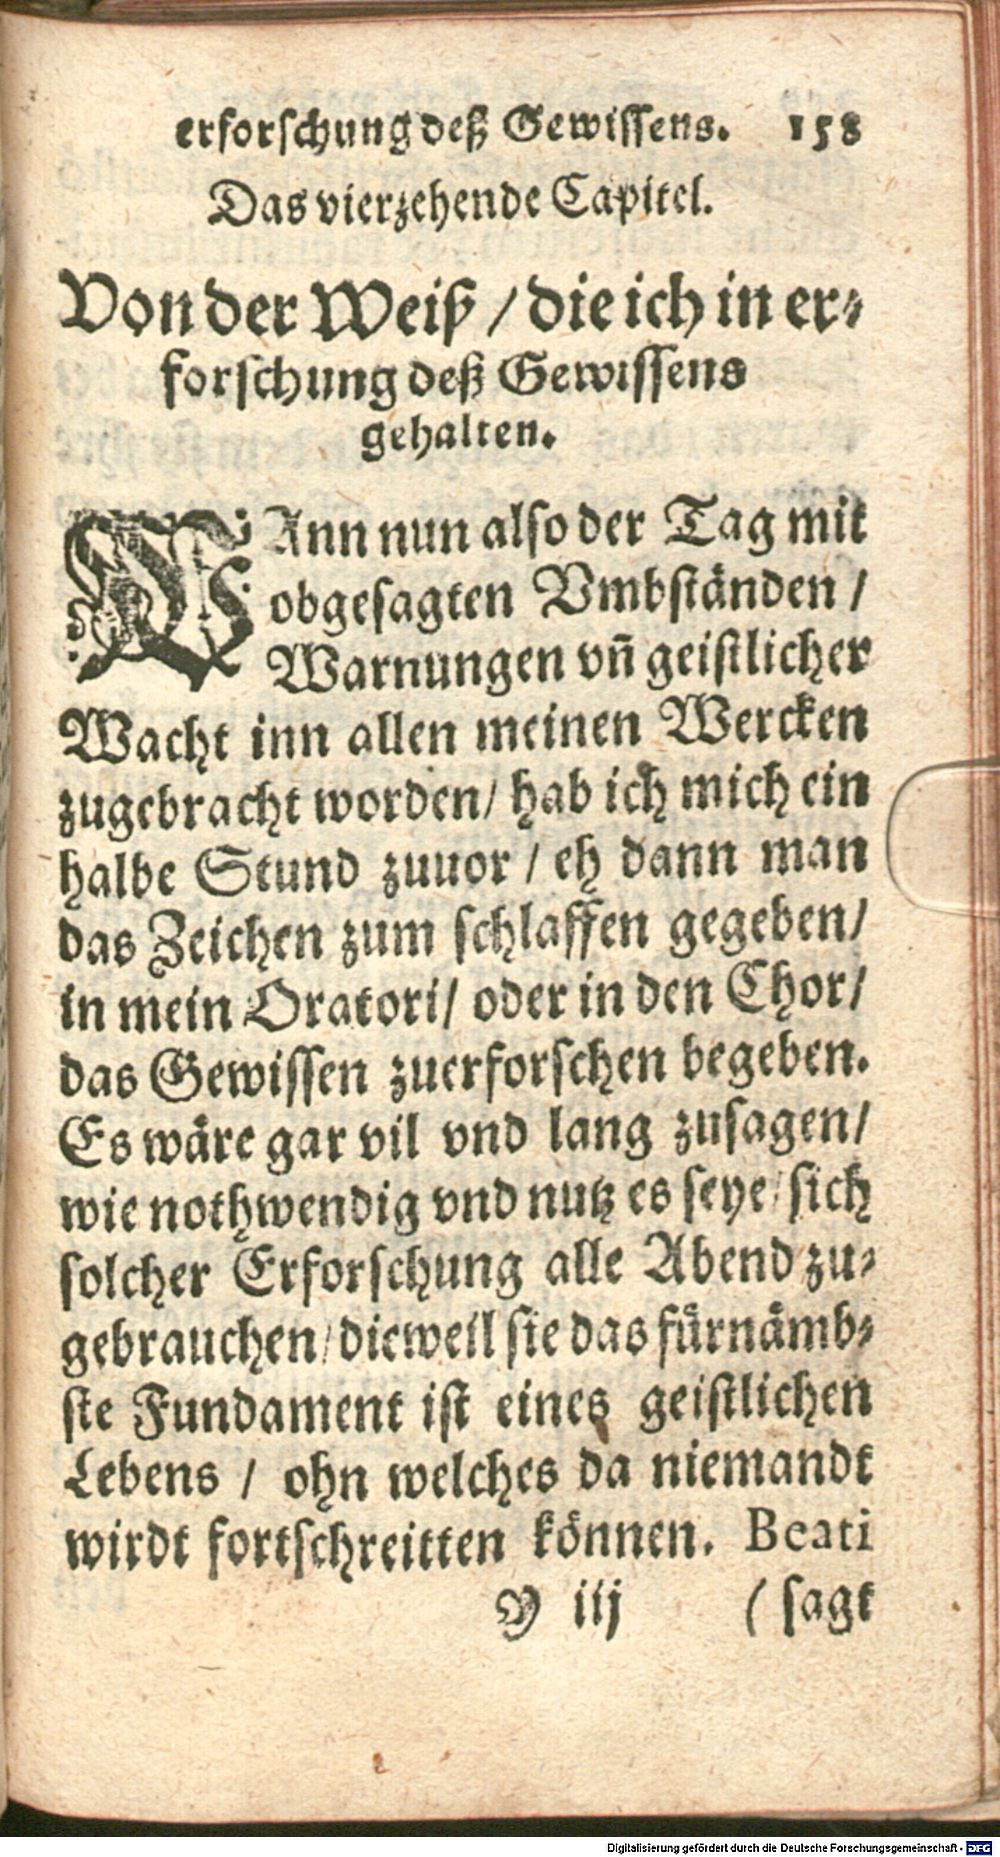 erforschung deß Gewissens. 158
Das vierzehende Capitel.
Von der Weiß / die ich in er-
forschung deß Gewissens
gehalten.
WAnn nun also der Tag mit
obgesagten Vmbständen /
Warnungen vñ geistlicher
Wacht inn allen meinen Wercken
zugebracht worden / hab ich mich ein
halbe Stund zuuor / eh dann man
das Zeichen zum schlaffen gegeben /
in mein Oratori / oder in den Chor /
das Gewissen zuerforschen begeben.
Es wäre gar vil vnd lang zusagen /
wie nothwendig vnd nutz es seye / sich
solcher Erforschung alle Abend zu-
gebrauchen / dieweil sie das fürnämb-
ste Fundament ist eines geistlichen
Lebens / ohn welches da niemandt
wirdt fortschreitten können. Beati
Y iij ( sagt
Digitalisierung gefördert durch die Deutsche Forschungsgemeinschaft - DFG